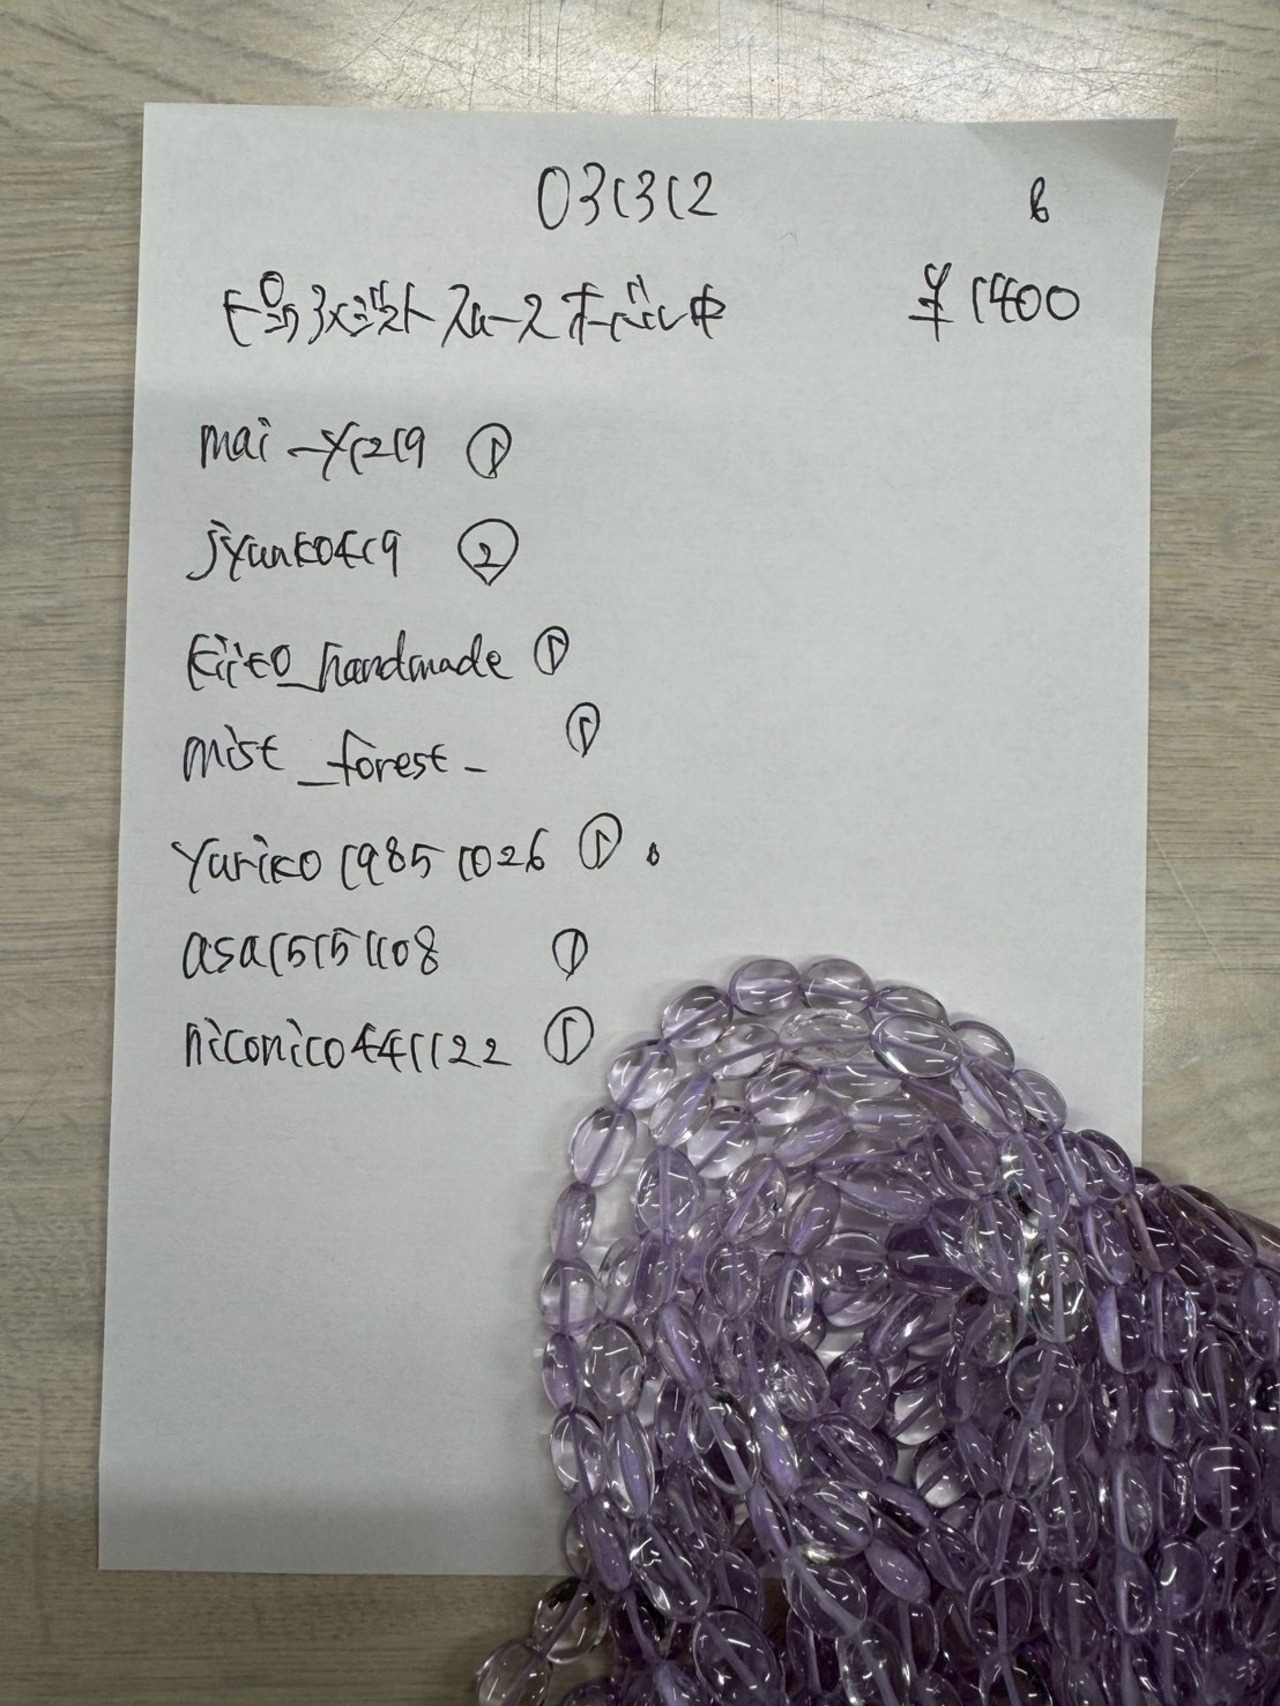 031312 6
ピンクアメジスト スムース オーバル 中 ¥1400
mai_y1219 ①
jyunko419 ②
kiiko_handmade ①
mist_forest_ ①
yuriko19851026 ①
asa15151108 ①
niconico441122 ①